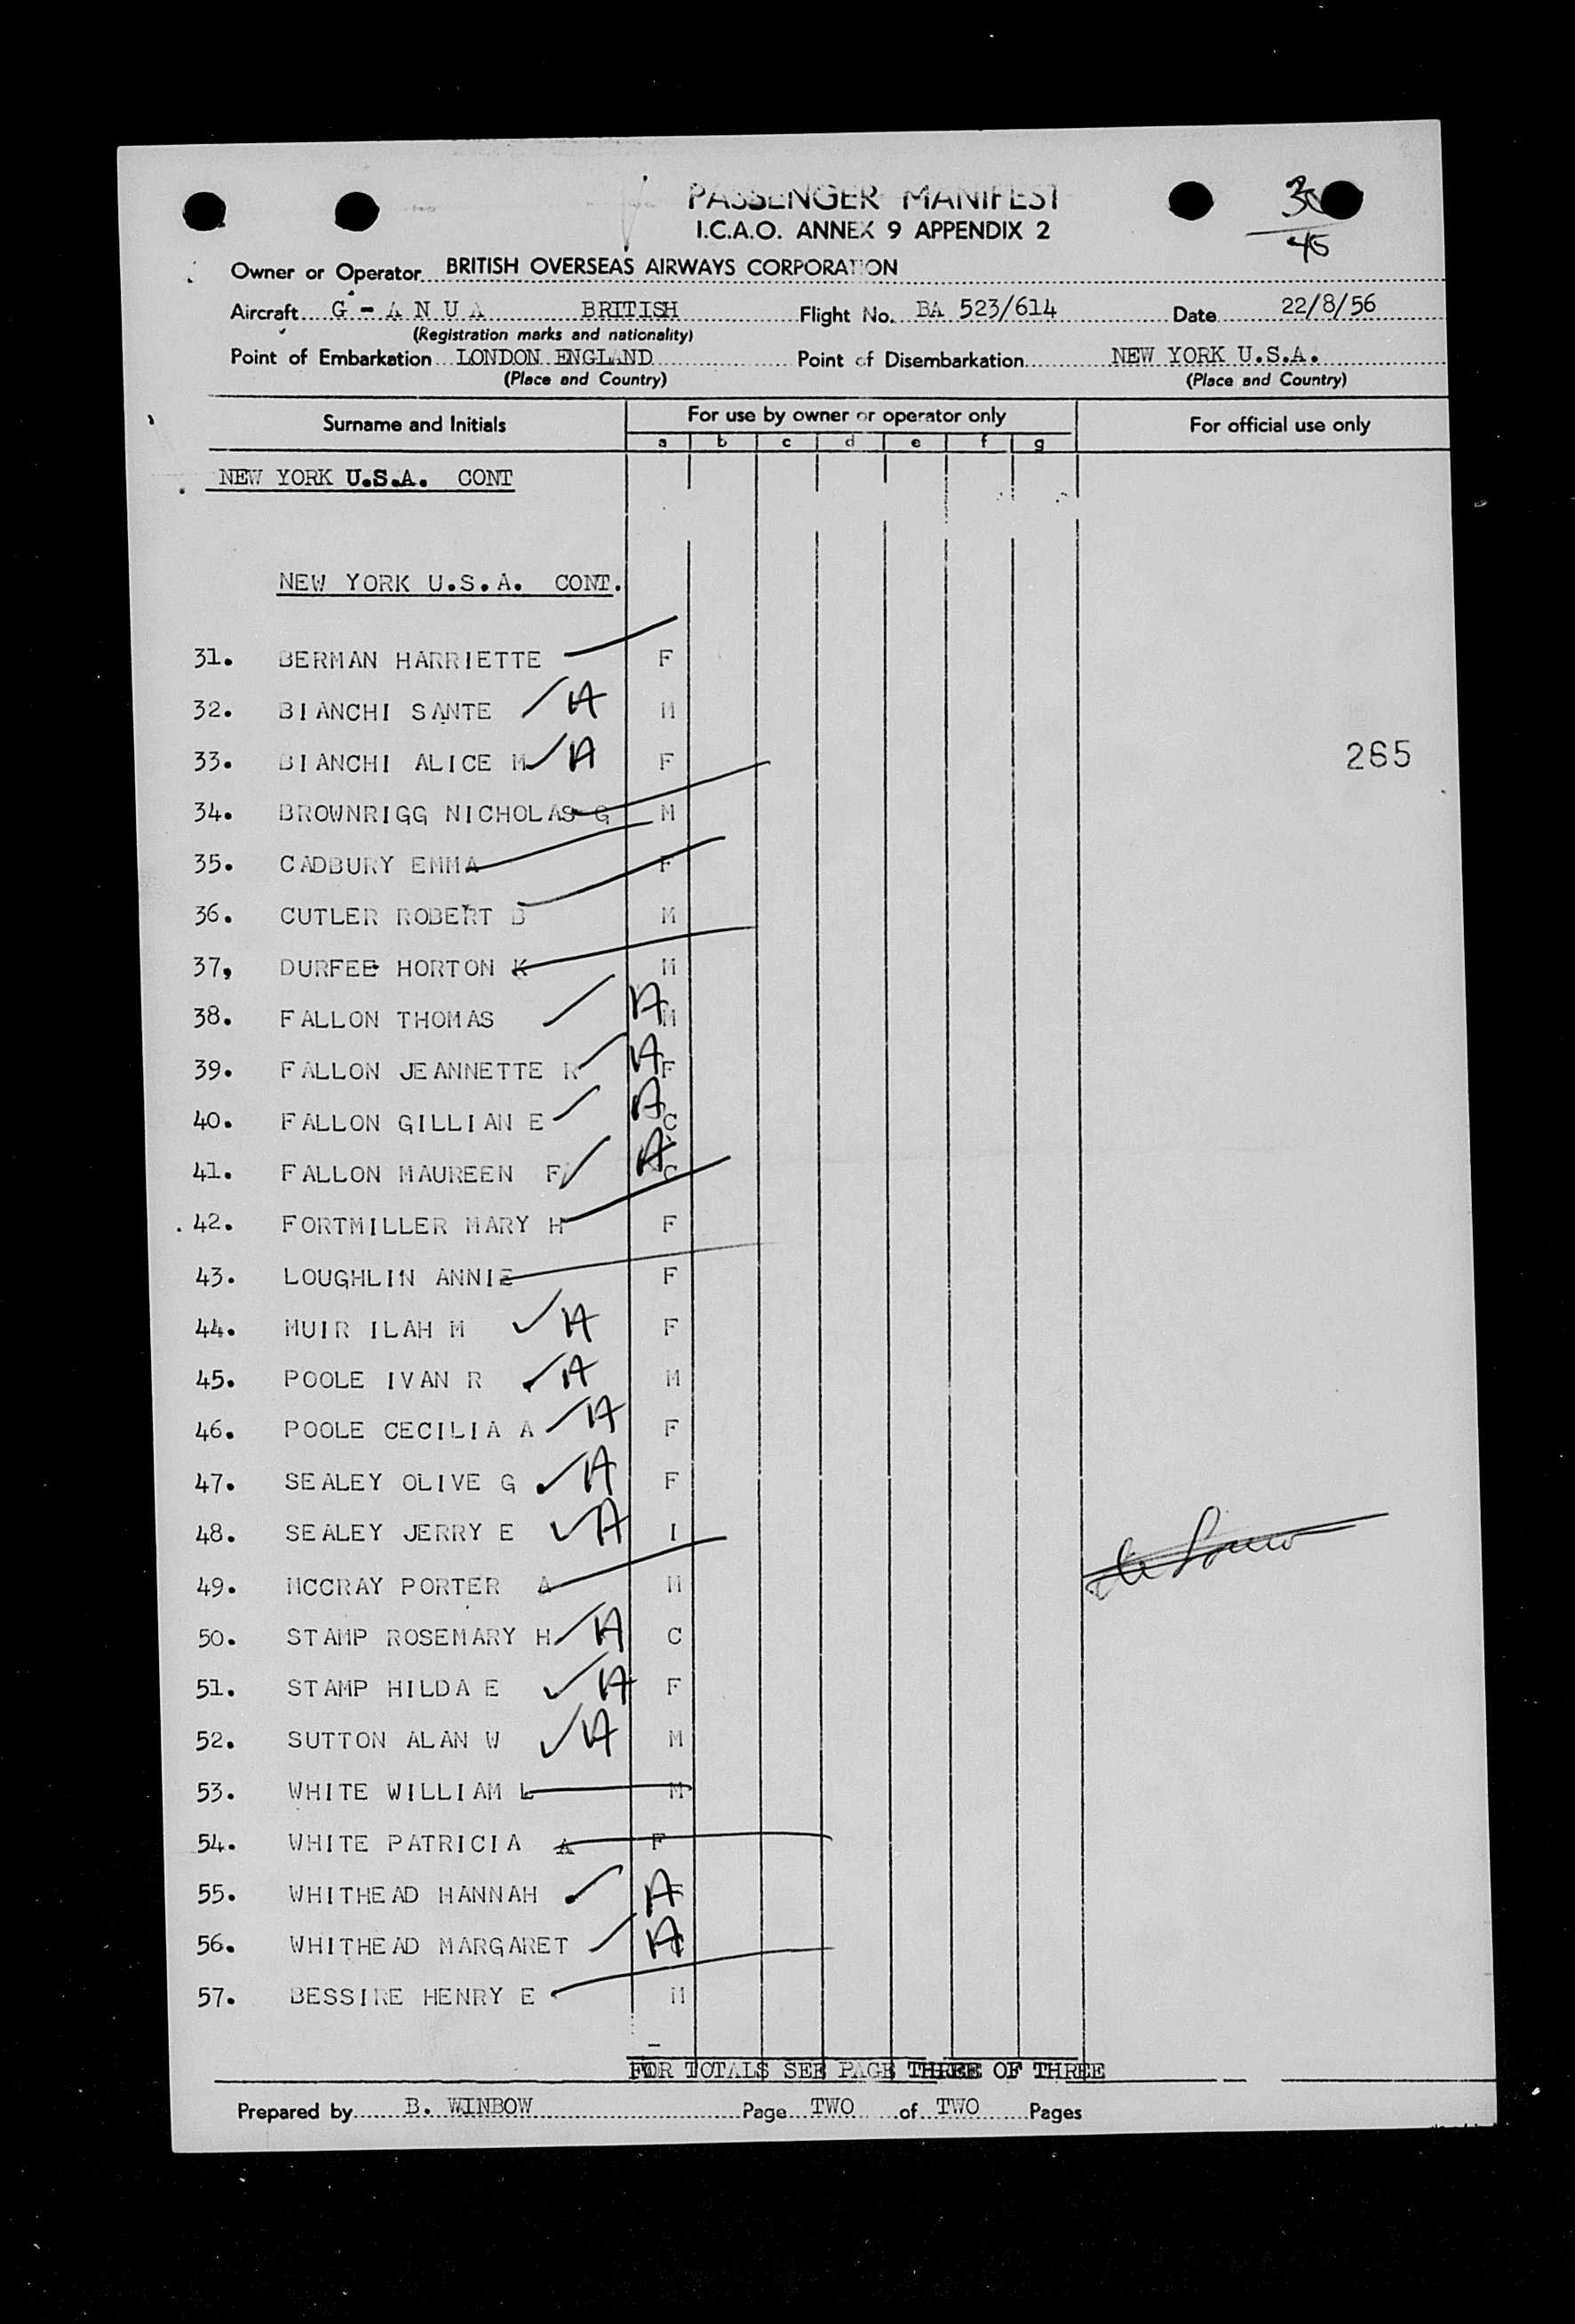 PASSENGER MANIFEST
30
45
I.C.A.O. ANNEX 9 APPENDIX 2
Owner or Operator BRITISH OVERSEAS AIRWAYS CORPORATION
Aircraft G - A N U A BRITISH Flight No. BA 523/614 Date 22/8/56
(Registration marks and nationality)
Point of Embarkation LONDON ENGLAND Point of Disembarkation NEW YORK U.S.A.
(Place and Country) (Place and Country)
Surname and Initials For use by owner or operator only For official use only
a b c d e f g
NEW YORK U.S.A. CONT
NEW YORK U.S.A. CONT.
31. BERMAN HARRIETTE F
32. BIANCHI SANTE A M
33. BIANCHI ALICE M A F 265
34. BROWNRIGG NICHOLAS G M
35. CADBURY EMMA F
36. CUTLER ROBERT B M
37, DURFEE HORTON K M
38. FALLON THOMAS A M
39. FALLON JEANNETTE R A F
40. FALLON GILLIAN E A C
41. FALLON MAUREEN F A C
42. FORTMILLER MARY H F
43. LOUGHLIN ANNIE F
44. MUIR ILAH M A F
45. POOLE IVAN R A M
46. POOLE CECILIA A A F
47. SEALEY OLIVE G A F
48. SEALEY JERRY E A I
49. MCCRAY PORTER A M
50. STAMP ROSEMARY H A C
51. STAMP HILDA E A F
52. SUTTON ALAN W A M
53. WHITE WILLIAM L M
54. WHITE PATRICIA A F
55. WHITHEAD HANNAH A F
56. WHITHEAD MARGARET A C
57. BESSIRE HENRY E M
FOR TOTALS SEE PAGE THREE OF THREE
Prepared by B. WINBOW Page TWO of TWO Pages